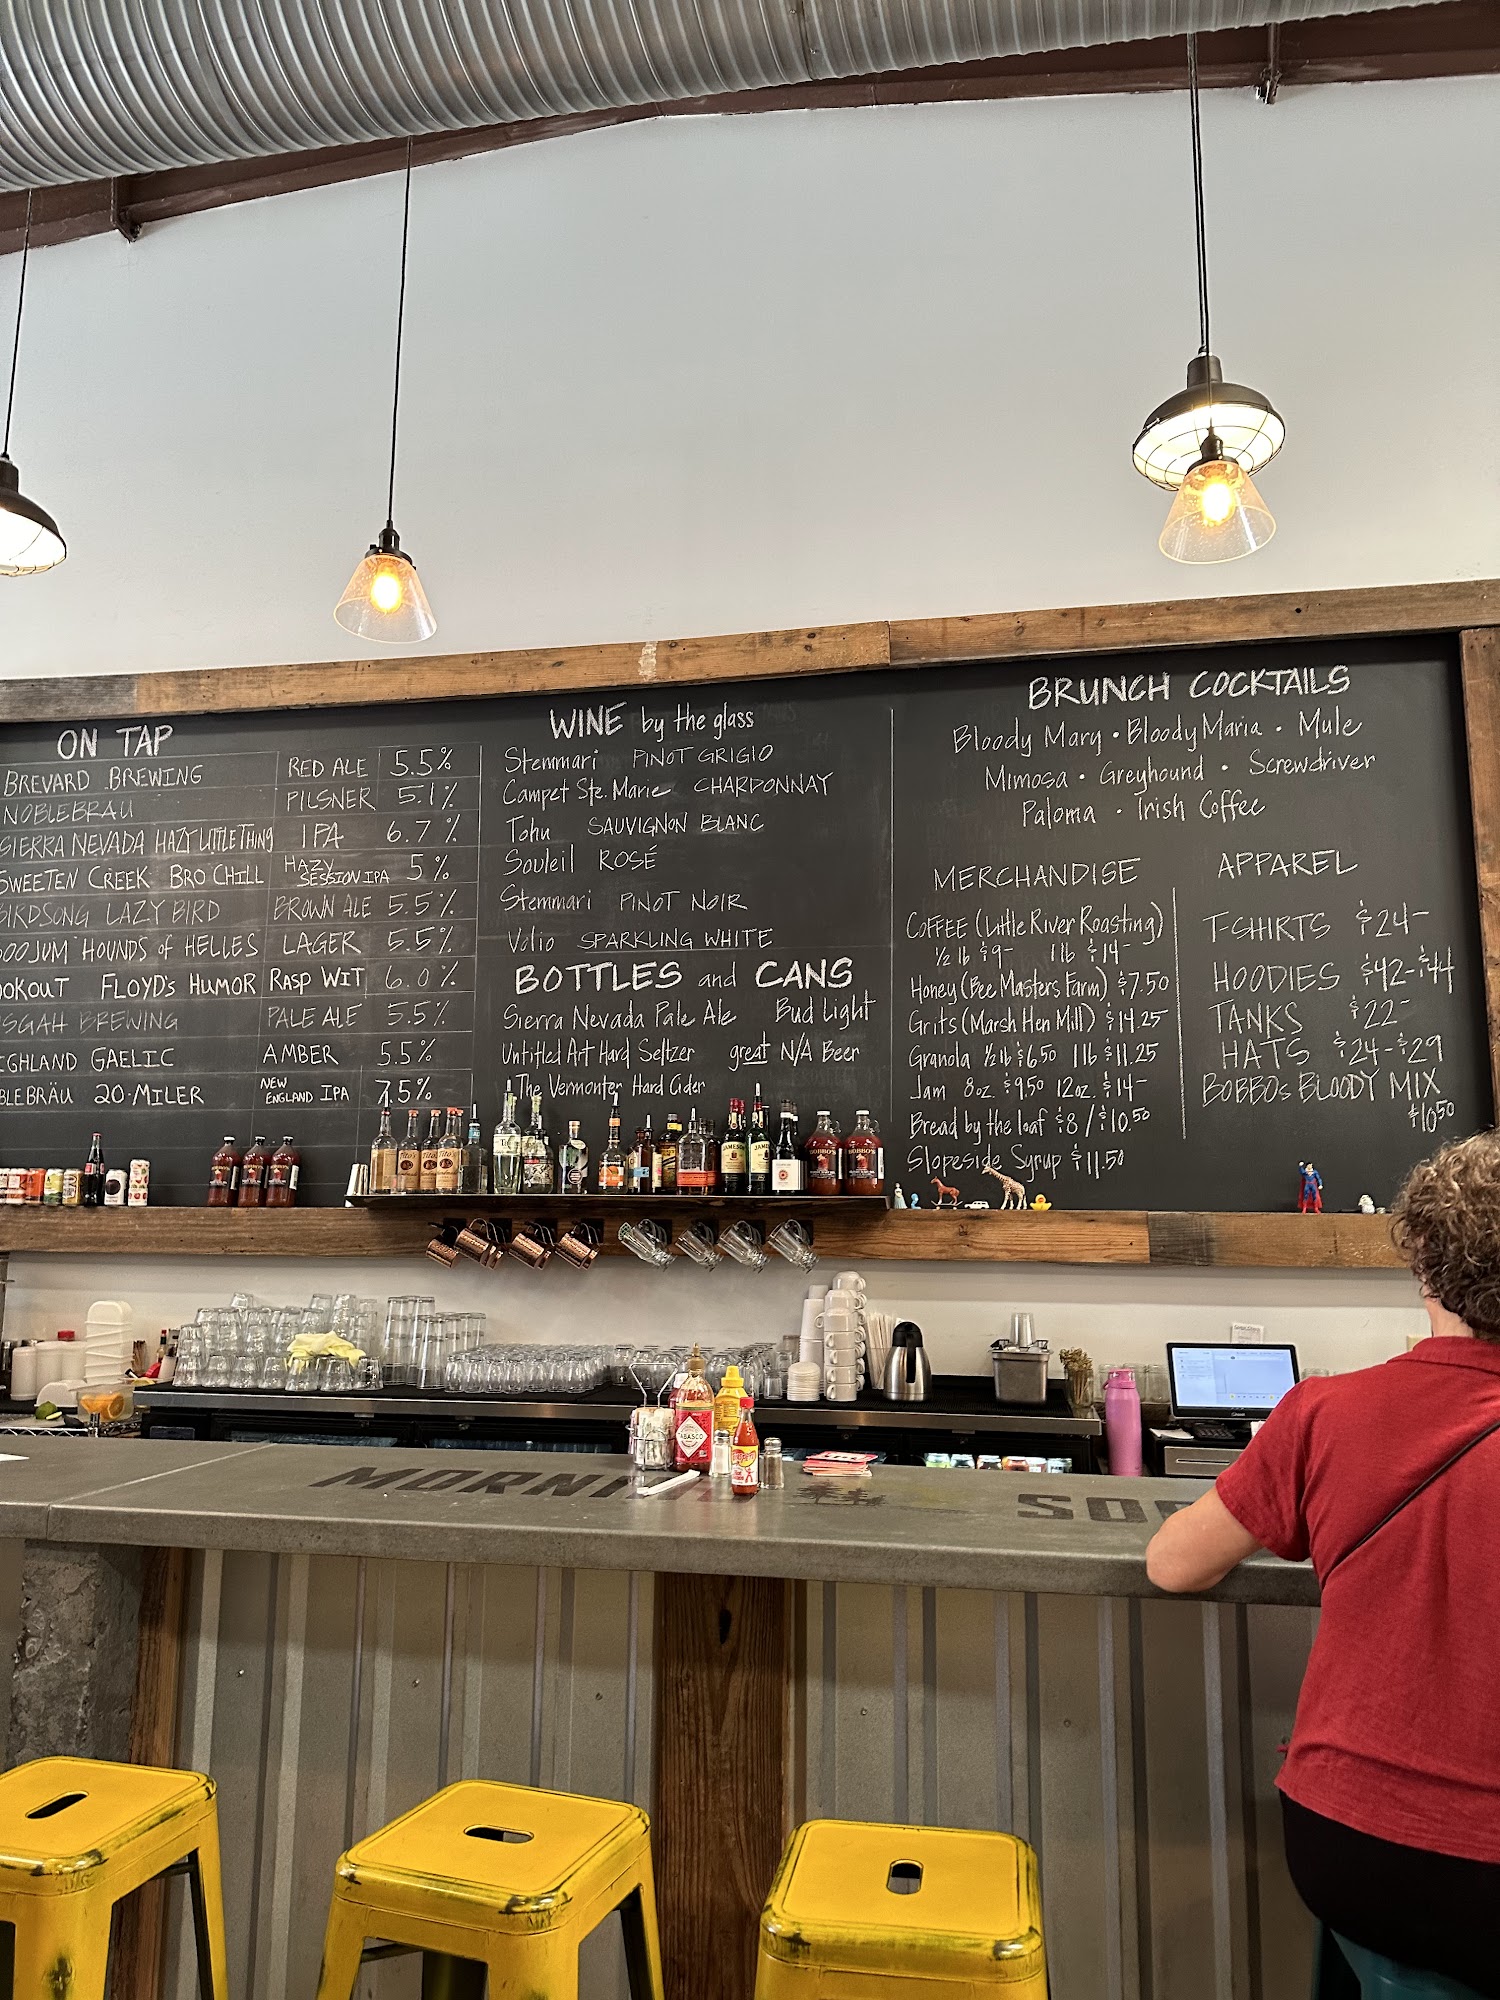 ON TAP
BREVARD BREWING RED ALE 5.5%
NOBLEBRÄU PILSNER 5.1%
SIERRA NEVADA HAZY LITTLE THING IPA 6.7%
SWEETEN CREEK BRO CHILL HAZY SESSION IPA 5%
BIRDSONG LAZY BIRD BROWN ALE 5.5%
OOJUM HOUNDS of HELLES LAGER 5.5%
OOKOUT FLOYD'S HUMOR RASP WIT 6.0%
SGAH BREWING PALE ALE 5.5%
IGHLAND GAELIC AMBER 5.5%
BLEBRÄU 20-MILER NEW ENGLAND IPA 7.5%
WINE by the glass
Stemmari PINOT GRIGIO
Campet Ste. Marie CHARDONNAY
Tohu SAUVIGNON BLANC
Souleil ROSÉ
Stemmari PINOT NOIR
Volio SPARKLING WHITE
BOTTLES and CANS
Sierra Nevada Pale Ale Bud Light
Untitled Art Hard Seltzer great N/A Beer
The Vermonter Hard Cider
BRUNCH COCKTAILS
Bloody Mary • Bloody Maria • Mule
Mimosa • Greyhound • Screwdriver
Paloma • Irish Coffee
MERCHANDISE
COFFEE (Little River Roasting)
½ lb $9- 1 lb $14-
Honey (Bee Masters Farm) $7.50
Grits (Marsh Hen Mill) $14.25
Granola ½ lb $6.50 1 lb $11.25
Jam 8oz. $9.50 12oz. $14-
Bread by the loaf $8 / $10.50
Slopeside Syrup $11.50
APPAREL
T-SHIRTS $24-
HOODIES $42-$44
TANKS $22-
HATS $24-$29
BOBBO's BLOODY MIX
$10.50
Tito's
Tito's
JAMESON
JAMES
BOBBO'S
BOBBO'S
TABASCO
MORNIN
SO